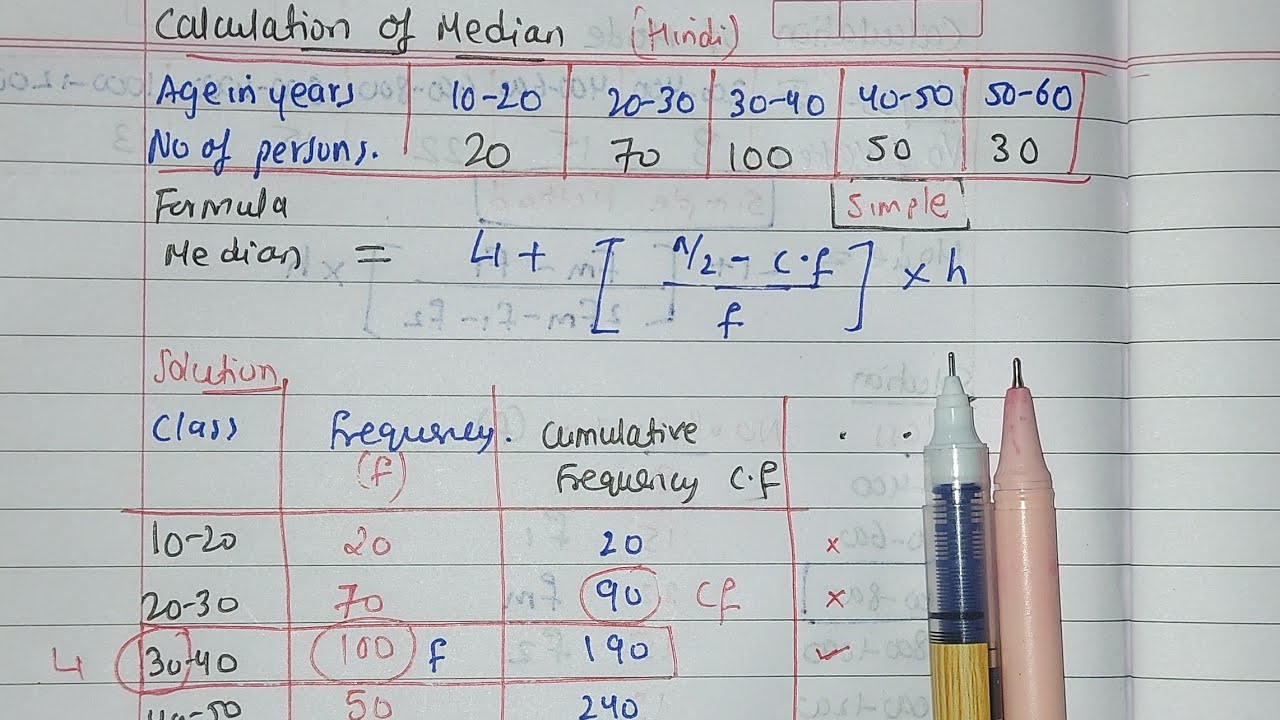 Calculation of Median (Hindi)
Age in years 10-20 20-30 30-40 40-50 50-60
No of persons. 20 70 100 50 30
Formula Simple
Median = L1 + [ n/2 - c.f / f ] x h
Solution
Class Frequency. Cumulative
(f) Frequency C.f
10-20 20 20 x
20-30 70 90 Cf x
L1 30-40 100 f 190 ✓
40-50 50 240